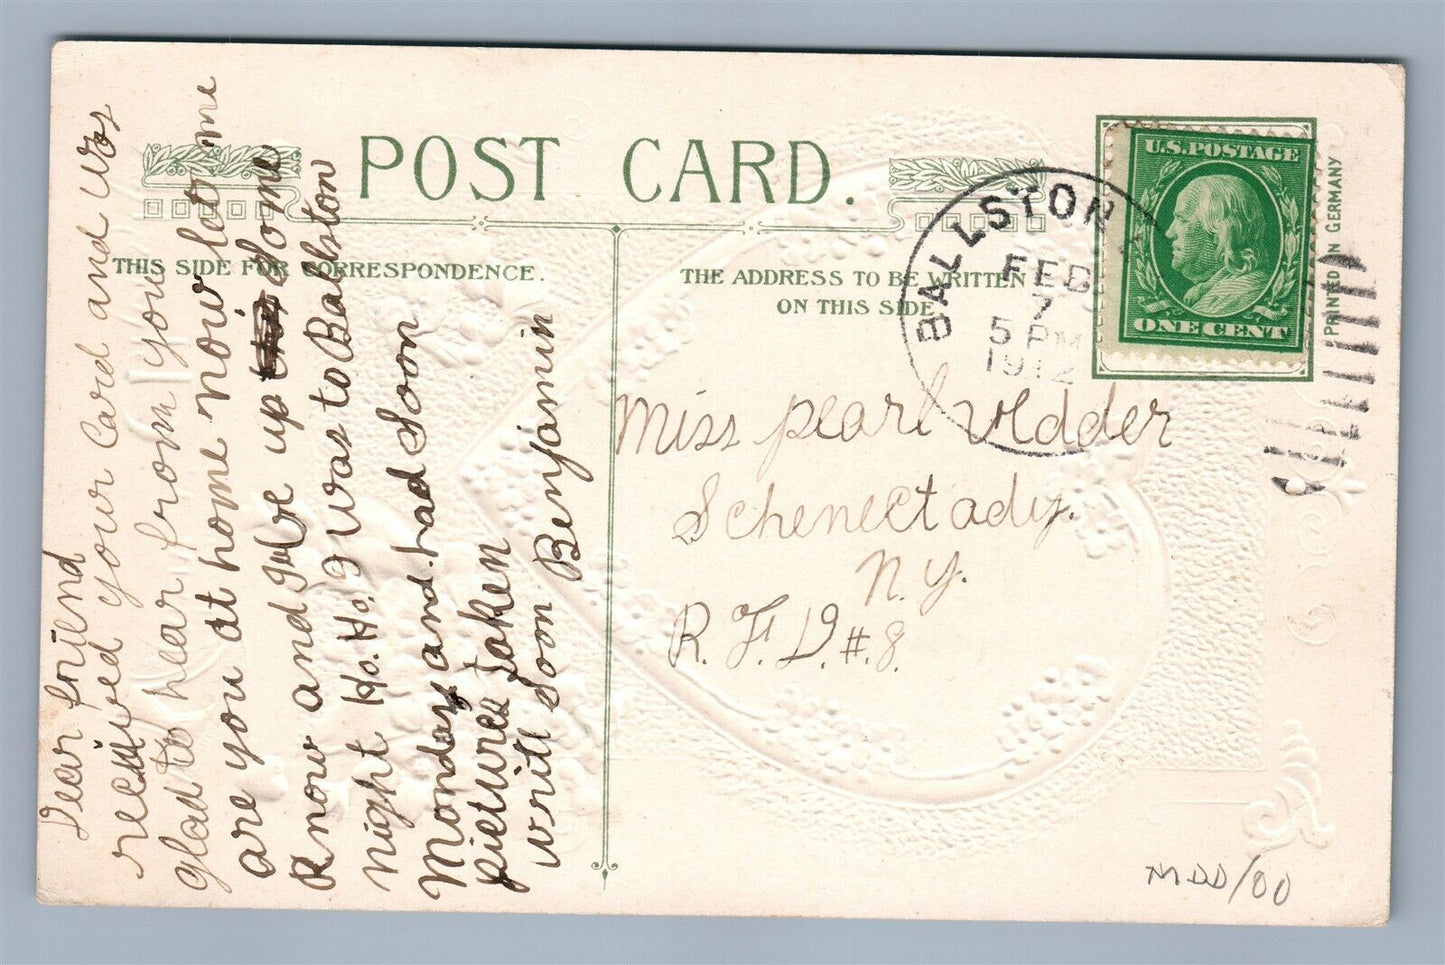 POST CARD.
THIS SIDE FOR CORRESPONDENCE.
THE ADDRESS TO BE WRITTEN
ON THIS SIDE.
Dear friend
received your Card and Was
glad to hear from you
are you at home now let me
know and I will be up some
night Ho. Ho. I was to Ballston
Monday and had Soon
pictures taken
writ soon Benjamin
Miss pearl vedder
Schenectady.
N.y.
R.F.D.#.8.
BALLSTON
FEB
7
5 PM
1912
U.S. POSTAGE
ONE CENT
PRINTED IN GERMANY